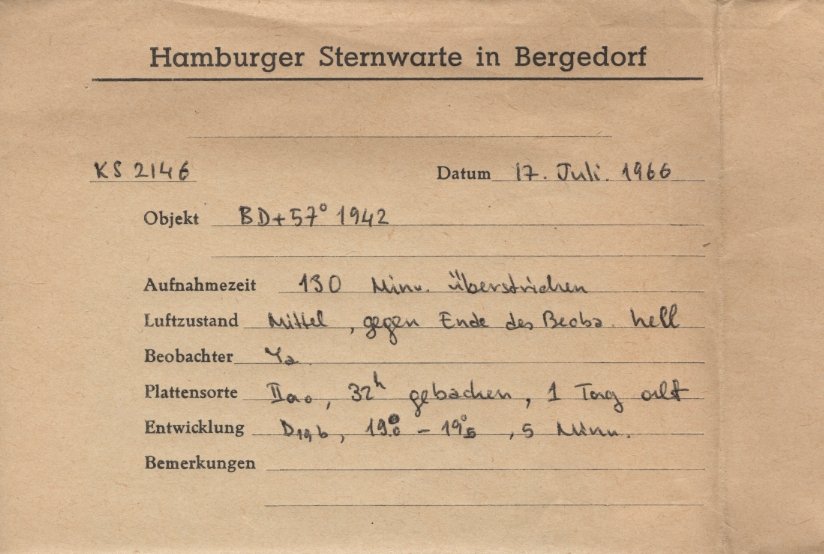 Hamburger Sternwarte in Bergedorf
KS 2146 Datum 17. Juli. 1966
Objekt BD+57° 1942
Aufnahmezeit 130 Minu. Überstrichen
Luftzustand Mittel, gegen Ende des Beoba. hell
Beobachter Ya
Plattensorte IIao, 32h gebacken, 1 Tag alt
Entwicklung D19b, 19°0 – 19°5, 5 Minu.
Bemerkungen